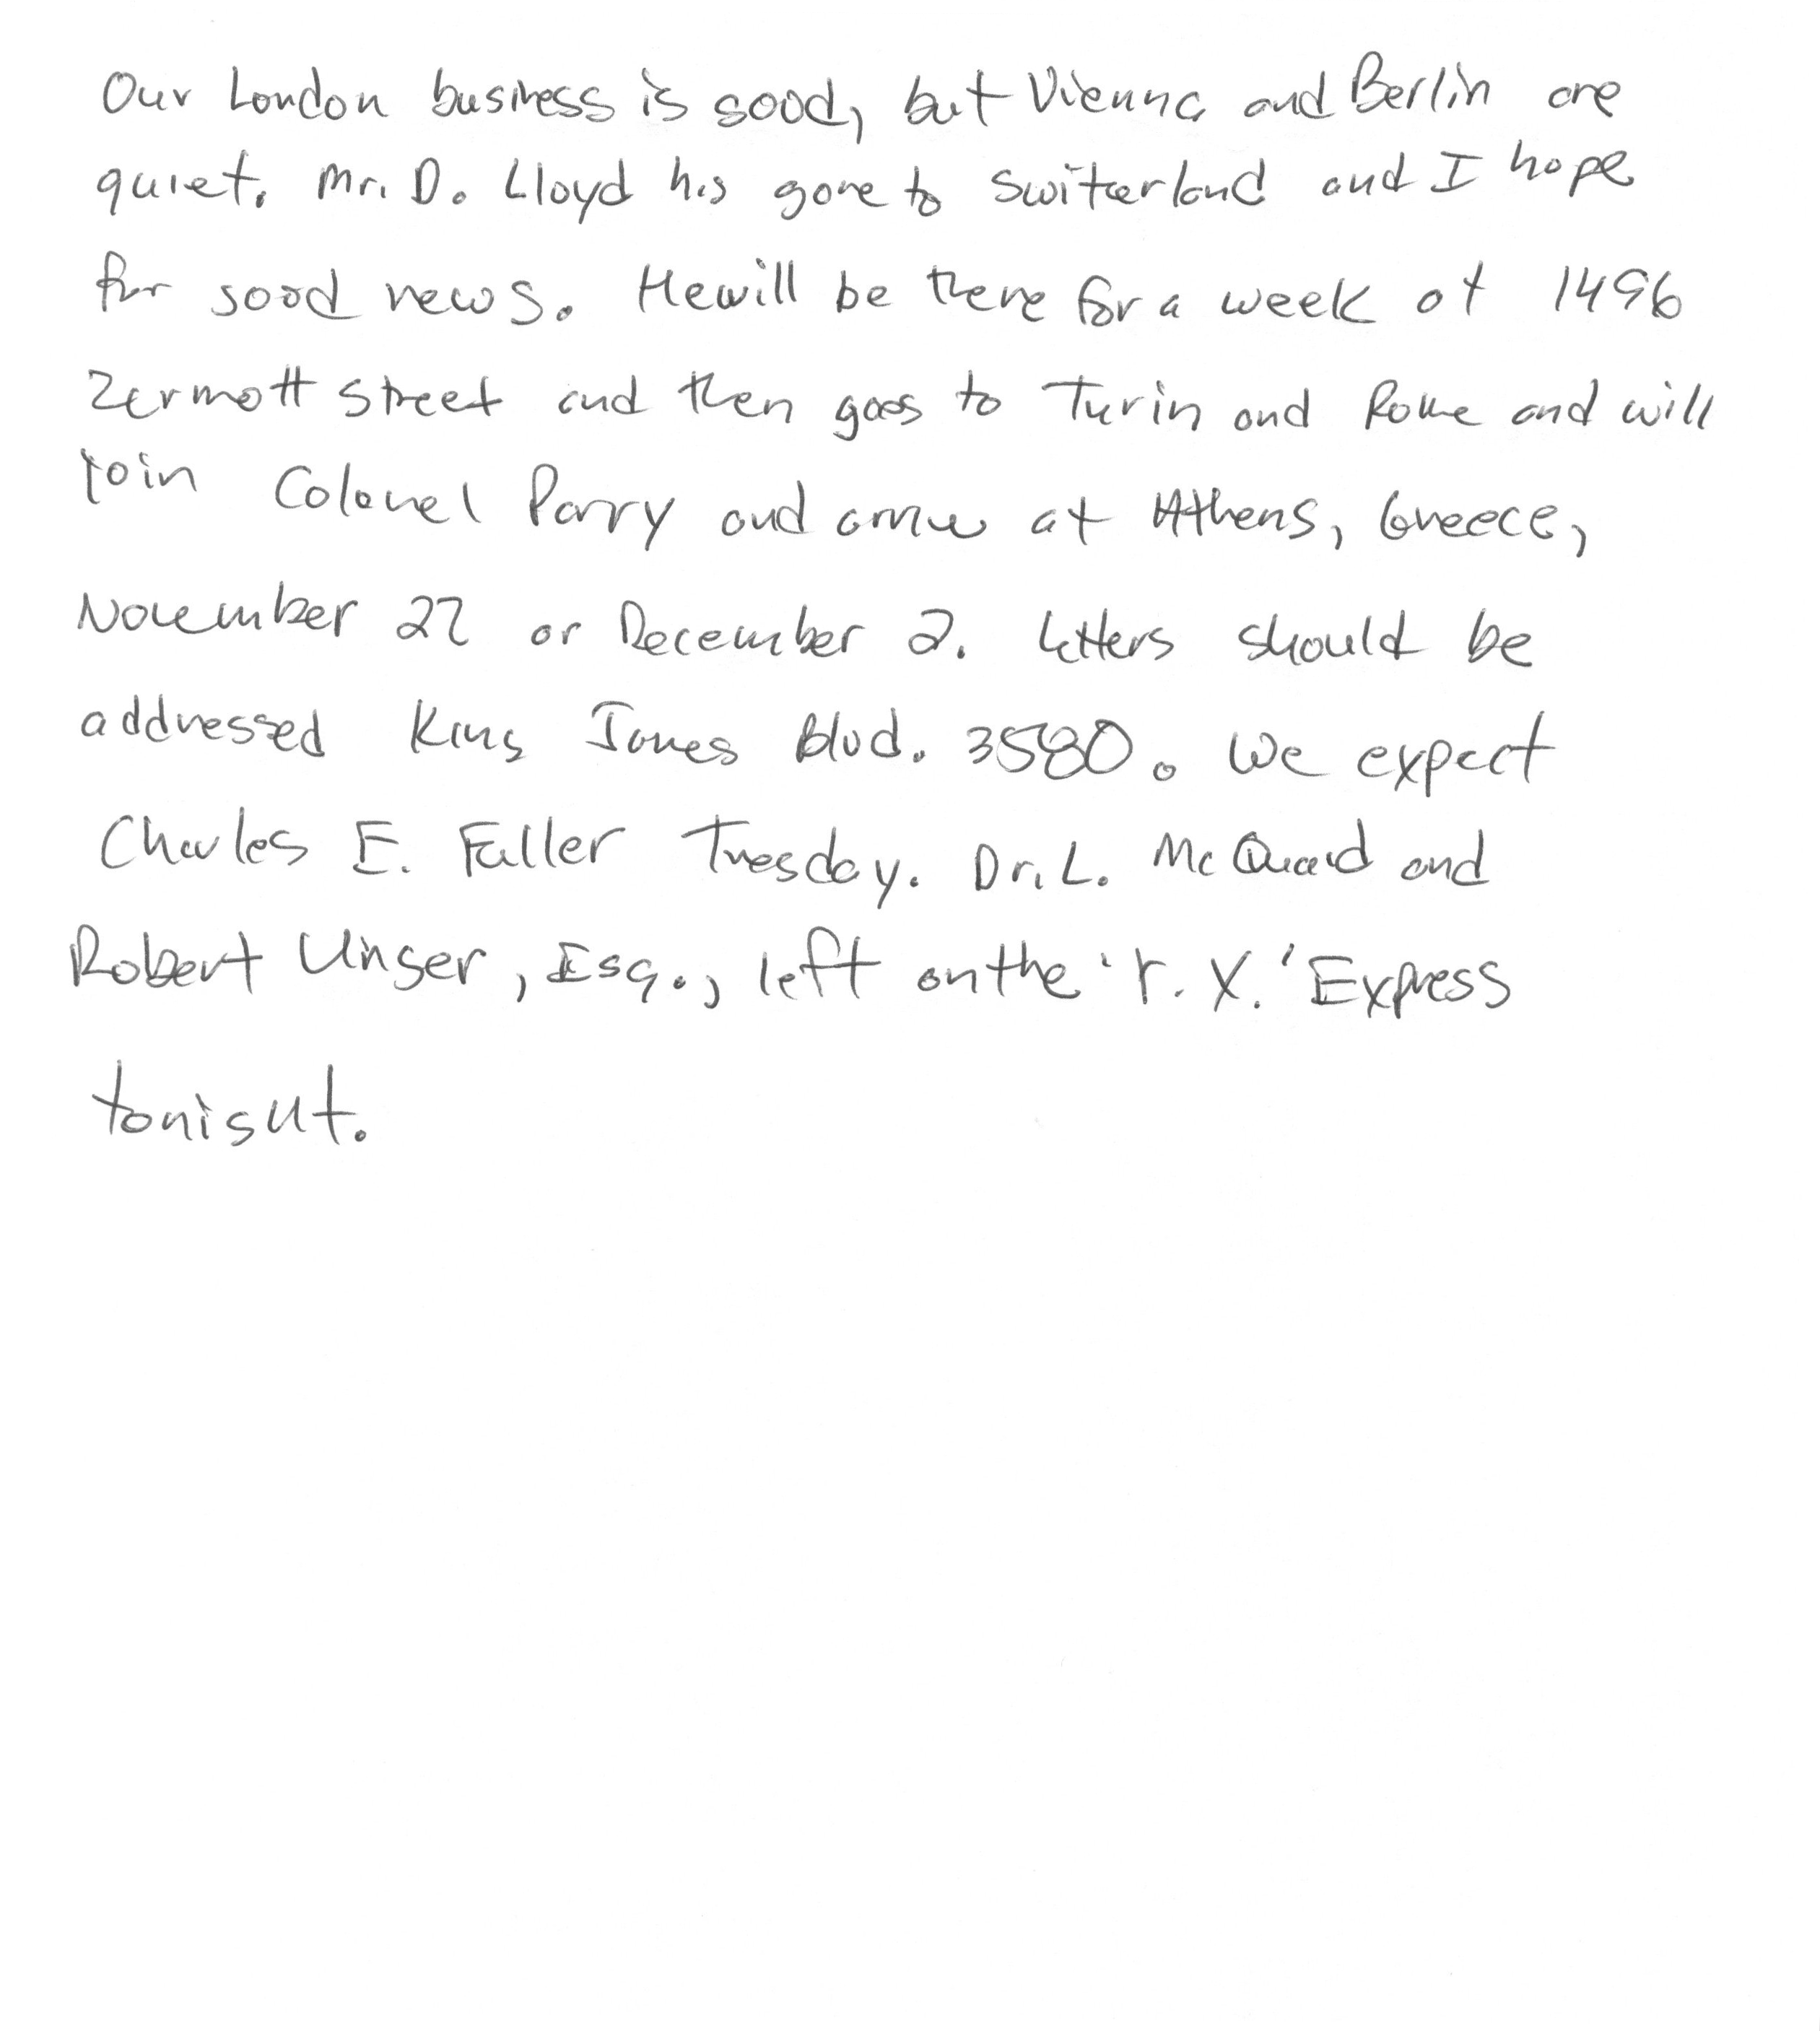 Our London business is good, but Vienna and Berlin are
quiet. Mr. D. Lloyd has gone to Switzerland and I hope
for good news. He will be there for a week at 1496
Zermott Street and then goes to Turin and Rome and will
join Colonel Parry and arrive at Athens, Greece,
November 27 or December 2. Letters should be
addressed King James Blvd. 3580. We expect
Charles E. Fuller Tuesday. Dr. L. McQuaid and
Robert Unger, Esq., left on the 'Y. X.' Express
tonight.